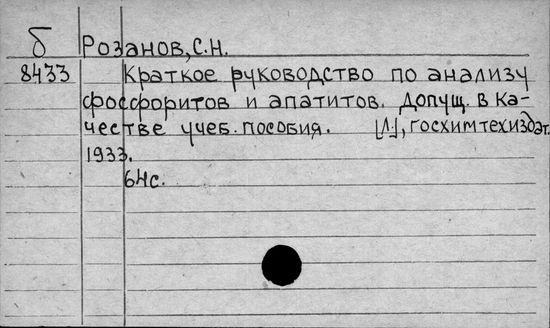 б Розанов, С.Н.
8433 Краткое руководство по анализу
фосфоритов и апатитов. Допущ. в ка-
честве учеб. пособия. [Л.], госхимтехиздат.
1933.
64с.